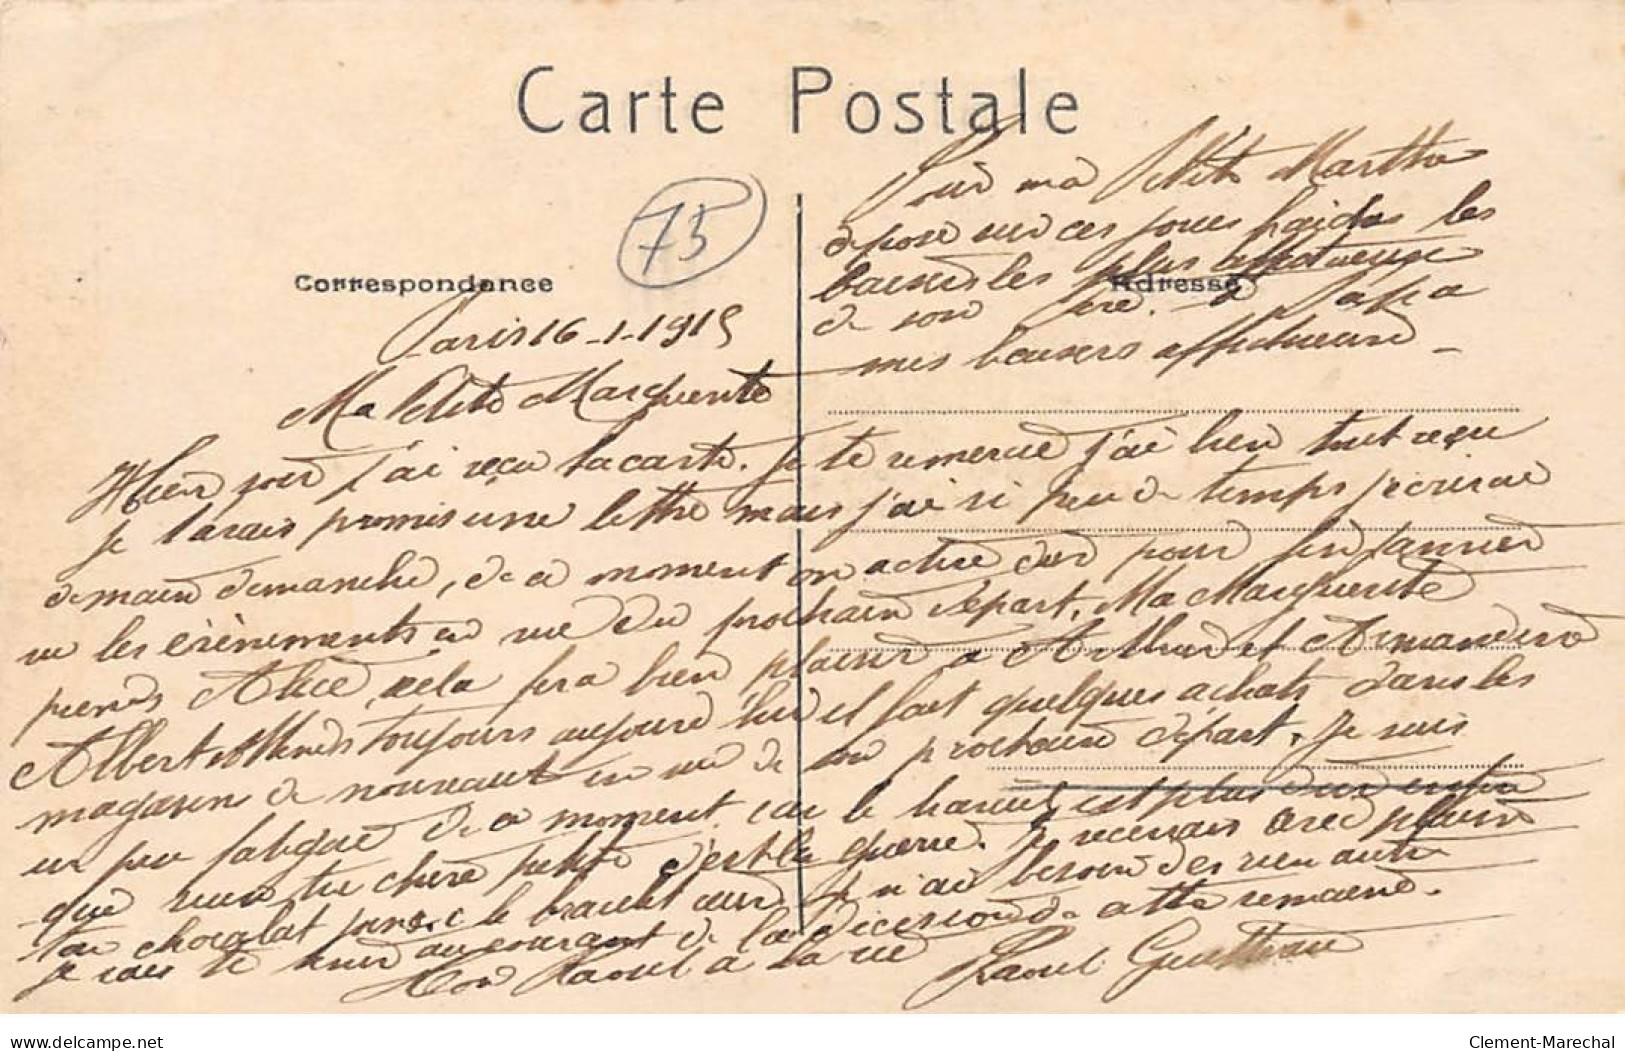 Carte Postale
75
Correspondance
Adresse
Pour ma Petite Marthe
dépose sur ces joues les
baisers les plus affectueux
de son Père. Papa
mes baisers affectueux
Paris 16-1-1915
Ma Petite Marguerite
Hier soir j'ai reçu ta carte. Je te remercie j'ai bien tout reçu
je t'avais promis une lettre mais j'ai si peu de temps j'écrirai
demain dimanche, de ce moment on active dur pour fin Janvier
vu les évènements en vue du prochain départ. Ma Marguerite
prends Alice, cela fera bien plaisir à Arthur et Armandine
Albert toujours aujourd'hui il fait quelques achats dans les
magasins de nouveauté en vue de son prochain départ. Je suis
un peu fatigué de ce moment car le travail est plus dur enfin
que veux tu chère petite c'est la guerre. Je recevrais avec plaisir
ton chocolat le je n'ai besoin de rien autre
je vais te tenir au courant de la décision de cette semaine.
Ton Raoul à la vie Raoul
allcollection.net
Clement-Marechal